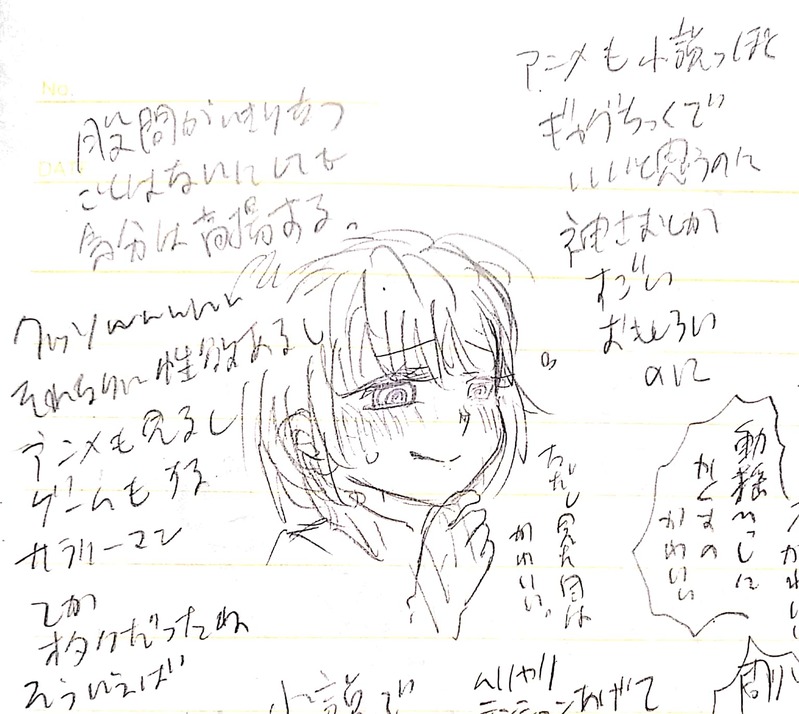 アニメも小説っぽく
ギャグちっくで
いいと思うのに
神さましか
すごい
おもしろい
のに
No.
DATE
股間がいきり立つ
ことはないにしても
気分は高揚する。
クッソwwwwww
それなりに性欲あるし
アニメも見るし
ゲームもする
サラリーマン
てか
オタクだったね
そういえば
ただし見た目は
かわいい。
動揺
かくすの
かわいい
小説で
ムリヤリ
テンションあげて